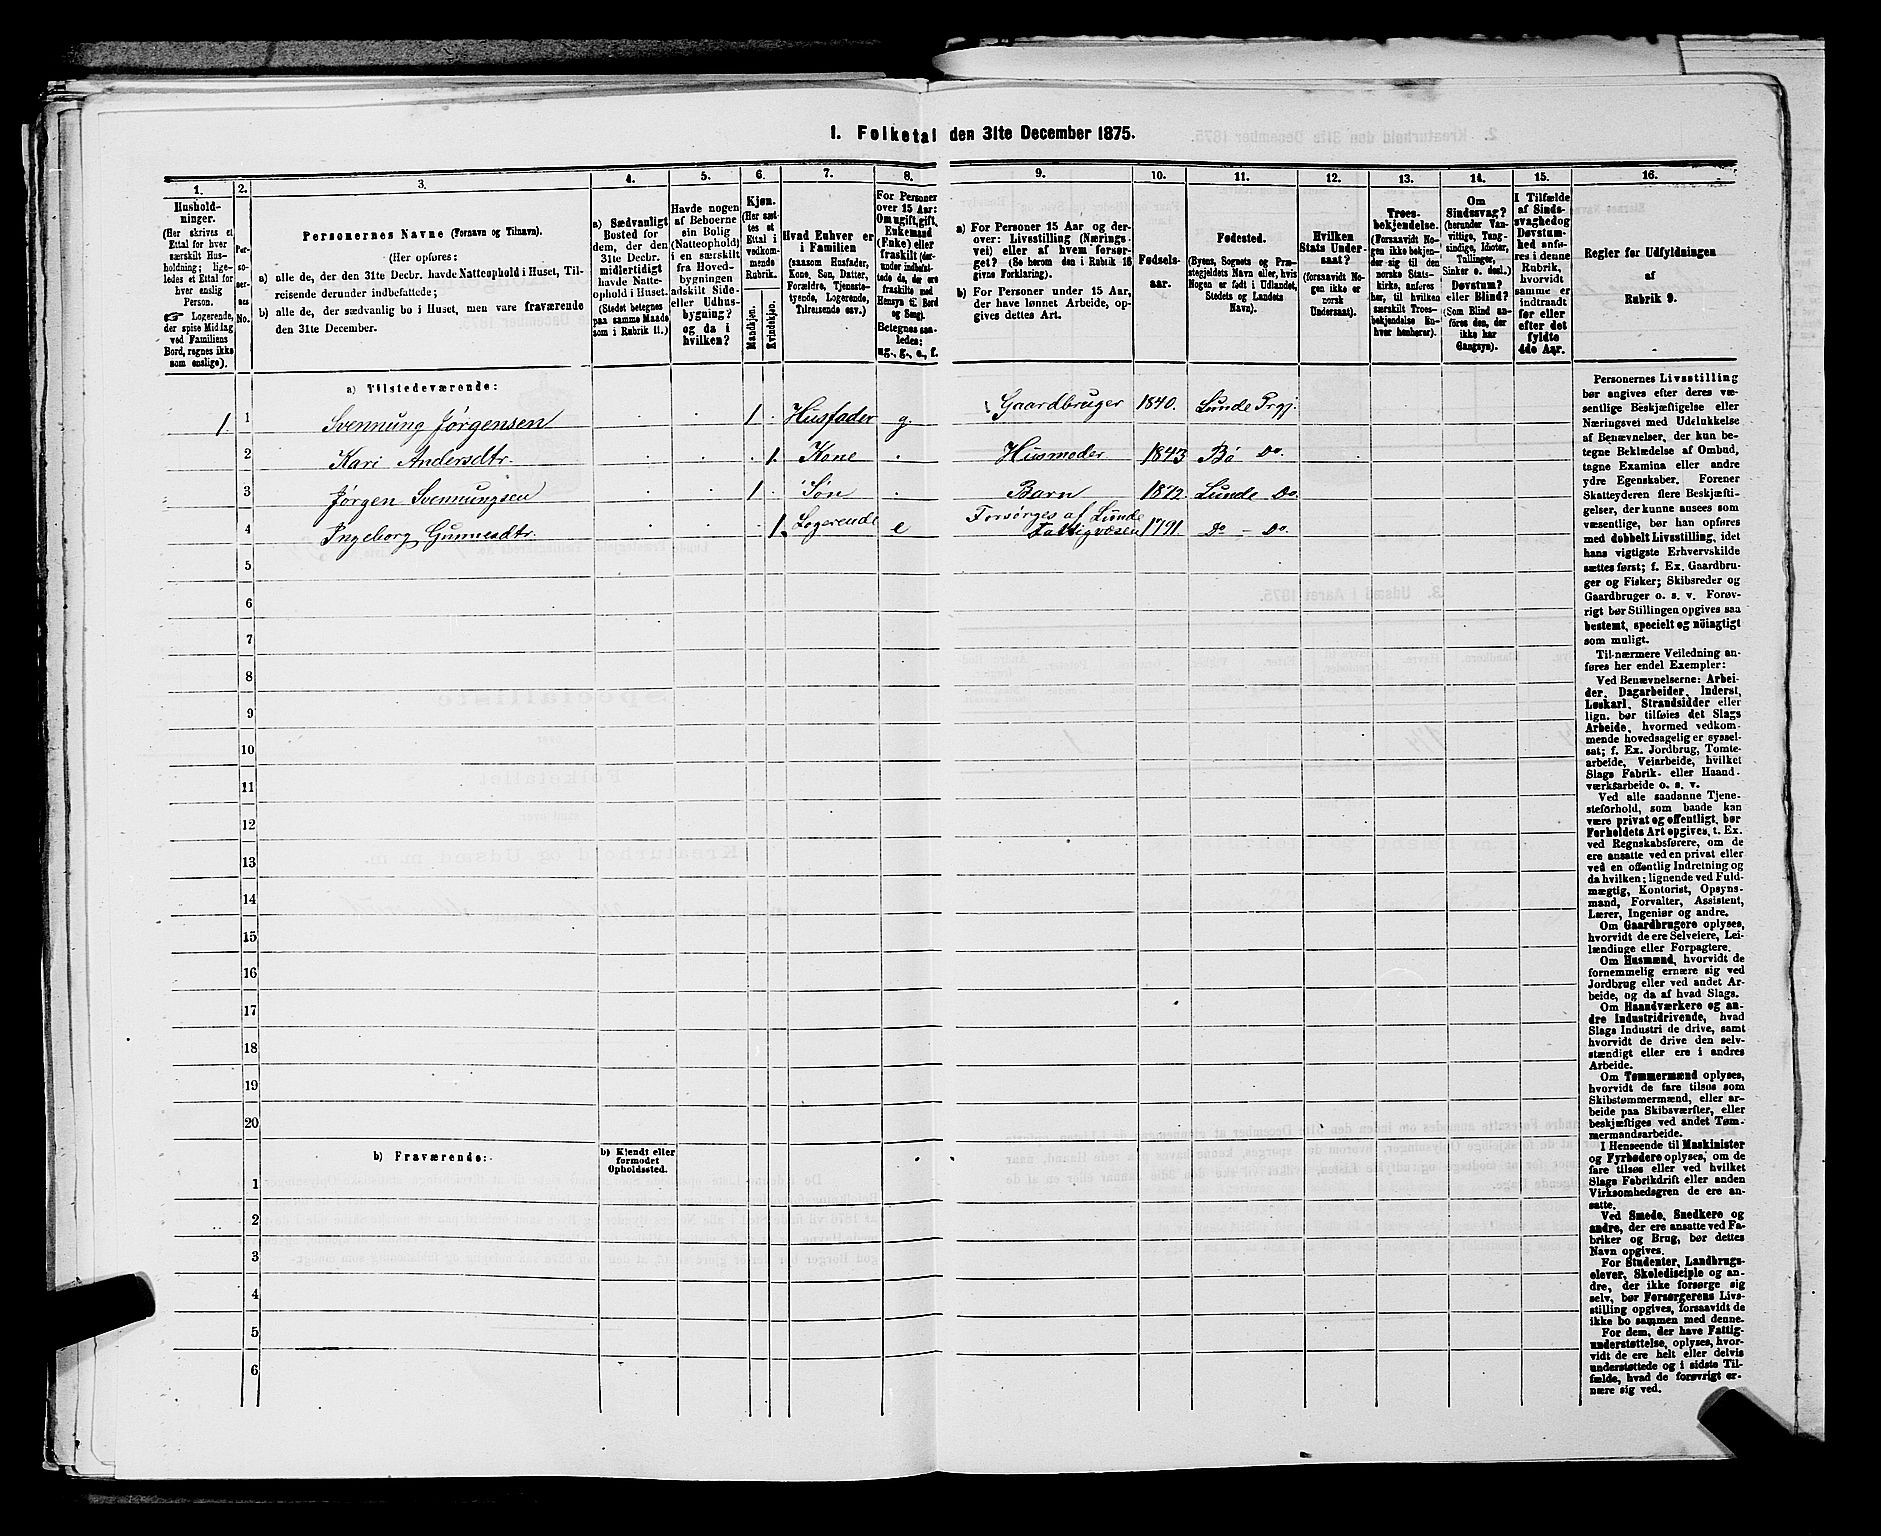 1. Folketal den 31te December 1875.
1.
2.
3.
4.
5.
6.
7.
8.
9.
10.
11.
12.
13.
14.
15.
16.
Hushold-
ninger.
(Her skrives et
Ettal for hver
særskilt Hus-
holdning; lige-
ledes et Ettal for
hver enslig
Person.
☞ Logerende,
der spise Middag
ved Familiens
Bord, regnes ikke
som enslige).
Per-
so-
ner-
nes
No.
Personernes Navne (Fornavn og Tilnavn).
(Her opføres:
a) alle de, der den 31te Decbr. havde Natteophold i Huset, Til-
reisende derunder indbefattede;
b) alle de, der sædvanlig bo i Huset, men vare fraværende
den 31te December.
a) Sædvanligt
Bosted for
dem, der den
31te Decbr.
midlertidigt
havde Natte-
ophold i Huset.
(Stedet betegnes
paa samme Maade
som i Rubrik 11.)
Havde nogen
af Beboerne
sin Bolig
(Natteophold)
i en særskilt
fra Hoved-
bygningen
adskilt Side-
eller Udhus-
bygning?
og da i
hvilken?
Kjøn.
(Her sæt-
tes et
Ettal i
vedkom-
mende
Rubrik.
Mandkjøn.
Kvindekjøn.
Hvad Enhver er
i Familien
(saasom Husfader,
Kone, Søn, Datter,
Forældre, Tjeneste-
tyende, Logerende,
Tilreisende osv.)
For Personer
over 15 Aar:
Om ugift, gift,
Enkemand
(Enke) eller
fraskilt (der-
under indbefat-
tede da, der ere
fraskilte med
Hensyn til Bord
og Seng).
Betegnes saa-
ledes:
ug., g., e., f.
a) For Personer 15 Aar og der-
over: Livsstilling (Nærings-
vei) eller af hvem forsør-
get? (Se herom den i Rubrik 16
givne Forklaring).
b) For Personer under 15 Aar,
der have lønnet Arbeide, op-
gives dettes Art.
Fødsels-
aar.
Fødested.
(Byens, Sognets og Præ-
stegjeldets Navn eller, hvis
Nogen er født i Udlandet,
Stedets og Landets
Navn).
Hvilken
Stats Under-
saat?
(forsaavidt No-
gen ikke er
norsk
Undersaat).
Troes-
bekjendelse.
(Forsaavidt No-
gen ikke bekjen-
der sig til den
norske Stats-
kirke, anføres
her, til hvilken
særskilt Troes-
bekjendelse En-
hver henhører).
Om
Sindssvag?
(herunder Van-
vittige, Tung-
sindige, Idioter,
Tullinger,
Sinker o. desl.).
Døvstum?
eller Blind?
(Som Blind an-
føres den, der
ikke har
Gangsyn).
I Tilfælde
af Sinds-
svaghed og
Døvstum-
hed anfø-
res i denne
Rubrik,
hvorvidt
samme er
indtraadt
før eller
efter det
fyldte
4de Aar.
Regler for Udfyldningen
af
Rubrik 9.
a) Tilstedeværende:
1. 1 Svennung Jørgensen 1 Husfader g. Gaardbruger 1840. Lunde Prgj.
2 Kari Andersdtr. 1. Kone Husmoder. 1843 Bø Do.
3 Jørgen Svennungsen 1 Søn Barn 1872. Lunde Do.
4 Ingeborg Gunnesdtr. 1. Logerende e Forsørges af Lunde
Fattigvæsen 1791. Do - Do.
5
6
7
8
9
10
11
12
13
14
15
16
17
18
19
20
b) Fraværende:
b) Kjendt eller
formodet
Opholdssted.
1
2
3
4
5
6
Personernes Livsstilling
bør angives efter deres væ-
sentlige Beskjæftigelse eller
Næringsvei med Udelukkelse
af Benævnelser, der kun be-
tegne Beklædelse af Ombud,
tagne Examina eller andre
ydre Egenskaber. Forener
Skatteyderen flere Beskjæfti-
gelser, der kunne ansees som
væsentlige, bør han opføres
med dobbelt Livsstilling, idet
hans vigtigste Erhvervskilde
sættes først; f. Ex. Gaardbru-
ger og Fisker; Skibsreder og
Gaardbruger o. s. v. Forøv-
rigt bør Stillingen opgives saa
bestemt, specielt og nöiagtigt
som muligt.
Til nærmere Veiledning an-
føres her endel Exempler:
Ved Benævnelserne: Arbei-
der, Dagarbeider, Inderst,
Løskarl, Strandsidder eller
lign. bør tilføies det Slags
Arbeide, hvormed vedkom-
mende hovedsagelig er syssel-
sat; f. Ex. Jordbrug, Tomte-
arbeide, Veiarbeide, hvilket
Slags Fabrik- eller Haand-
værksarbeide o. s. v.
Ved alle saadanne Tjene-
steforhold, som baade kan
være privat og offentligt, bør
Forholdets Art opgives, t. Ex.
ved Regnskabsførere, om de
ere ansatte ved en privat eller
ved en offentlig Indretning og
da hvilken; lignende ved Fuld-
mægtig, Kontorist, Opsyns-
mand, Forvalter, Assistent,
Lærer, Ingeniør og andre.
Om Gaardbrugere oplyses,
hvorvidt de ere Selveiere, Lei-
lændinge eller Forpagtere.
Om Husmænd, hvorvidt de
fornemmelig ernære sig ved
Jordbrug eller ved andet Ar-
beide, og da af hvad Slags.
Om Haandværkere og an-
dre Industridrivende, hvad
Slags Industri de drive, samt
hvorvidt de drive den selv-
stændigt eller ere i andres
Arbeide.
Om Tømmermænd oplyses,
hvorvidt de fare tilsøs som
Skibstømmermænd, eller ar-
beide paa Skibsværfter, eller
beskjæftiges ved andet Tøm-
mermandsarbeide.
I Henseende til Maskinister
og Fyrbødere oplyses, om de
fare tilsøs eller ved hvilket
Slags Fabrikdrift eller anden
Virksomhedsgren de ere an-
satte.
Ved Smede, Snedkere og
andre, der ere ansatte ved Fa-
briker og Brug, bør dettes
Navn opgives.
For Studenter, Landbrugs-
elever, Skoledisciple og an-
dre, der ikke forsørge sig
selv, bør Forsørgerens Livs-
stilling opgives, forsaavidt de
ikke bo sammen med denne.
For dem, der have Fattig-
understøttelse, oplyses, hvor-
vidt de ere helt eller delvis
understøttede og i sidste Til-
fælde, hvad de forøvrigt er-
nære sig ved.